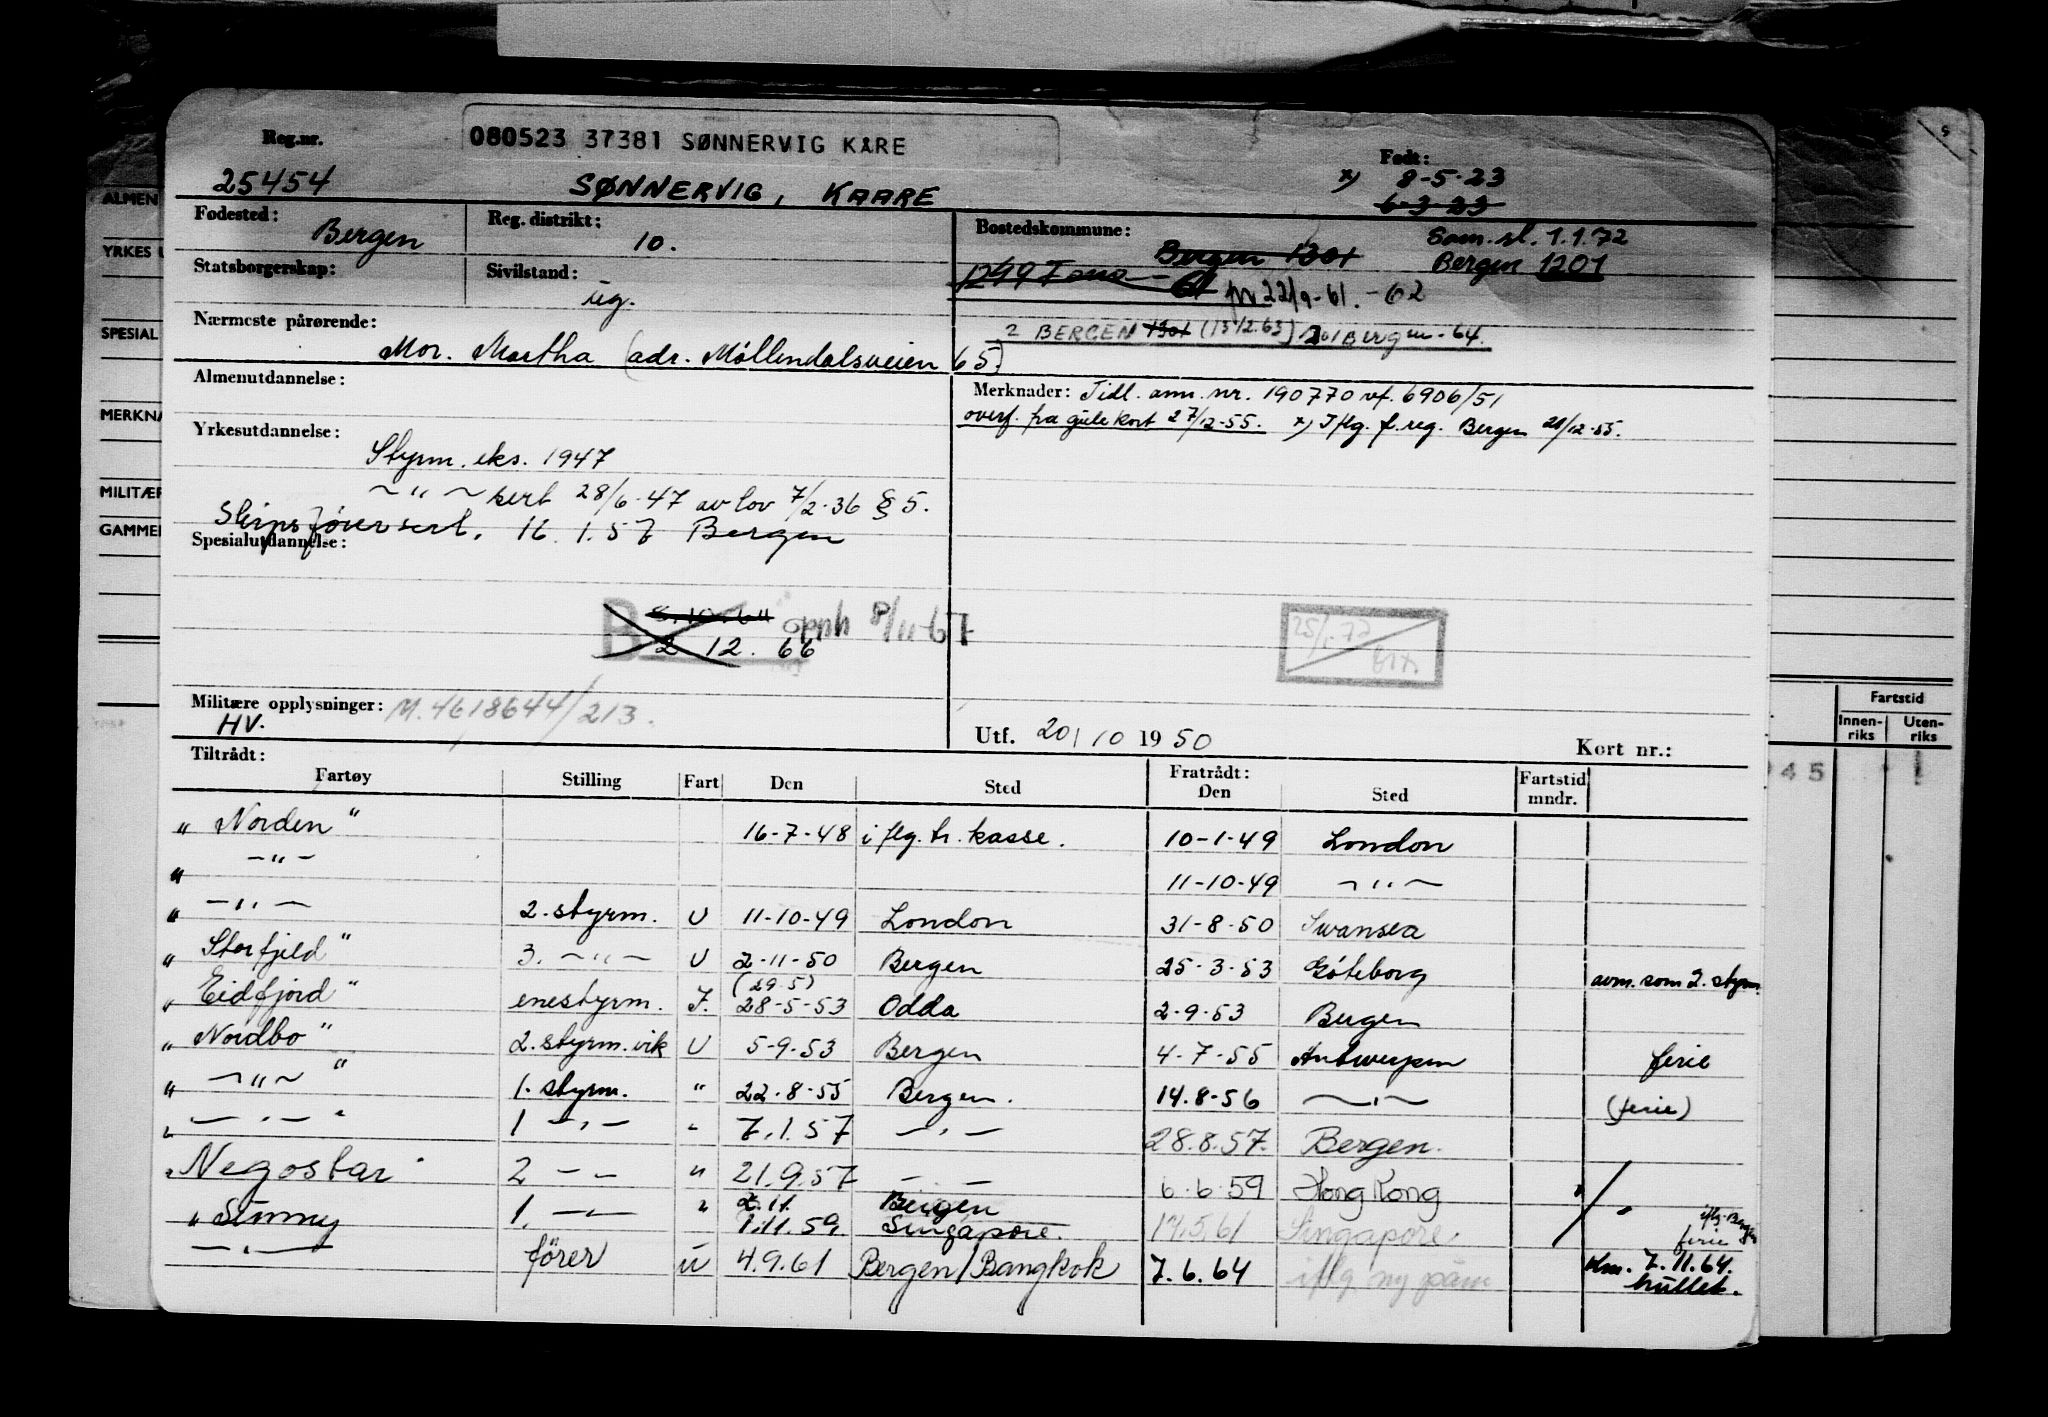 Reg.nr.
25454
080523 37381 SØNNERVIG KÅRE
SØNNERVIG, KAARE
Født:
x) 8-5-23
6-3-23
Fødested: Bergen
Reg. distrikt: 10.
Bostedskommune: Bergen 1301
Sam.sl. 1.1.72
Bergen 1201
1249 Fana - 61
22/9-61. -62
2 BERGEN 1301 (13/2.63) Bergen - 64.
Statsborgerskap:
Sivilstand: ug.
Nærmeste pårørende: Mor. Martha (adr. Møllendalsveien 65)
Almenutdannelse:
Merknader: Tidl. ann. nr. 190770 vf. 6906/51
overf. fra gule kort 27/12-55. x) Iflg. f.reg. Bergen 28/12-55.
Yrkesutdannelse:
Styrm. eks. 1947
~ " ~ sert 28/6-47 av lov 7/2-36 § 5.
Skipsførersert. 16.1.57 Bergen
Spesialutdannelse:
B 5.10.64
2 12. 66
opph 8/11-67
25/1 72
Militære opplysninger: M.4618644/213.
HV.
Utf. 20/10 1950
Kort nr.:
Tiltrådt:
Fratrådt:
Fartøy Stilling Fart Den Sted Den Sted Fartstid mndr.
" Norden " 16-7-48 iflg. tr. kasse. 10-1-49 London
" - " - 11-10-49 - " -
" - " - 2. styrm. U 11-10-49 London 31-8-50 Swansea
" Storfjeld " 3. - " - U 2-11-50 Bergen 25-3-53 Göteborg avm. som 2. styrm.
" Eidfjord " enestyrm. I. (29.5) 28-5-53 Odda 2-9-53 Bergen
" Nordbo " 2. styrm. vik U 5-9-53 Bergen 4-7-55 Antwerpen ferie
" - " - " 1. styrm. " 22.8-55 Bergen. 14.8-56 - " - (ferie)
" - " - " 1 - " - " 7.1.57 - " - 28.8.57. Bergen.
" Negostar " 2 - - " 21.9.57 - - 6.6.59 Hong Kong
" Simmy 1. - " - " 2.11. Bergen
1.11.59. Singapore. 17.5.61 Singapore. " iflg. Bergen ferie
- " - fører u 4.9.61 Bergen/Bangkok 7.6.64 iflg ny påm. 7.11.64.
ALMEN
YRKES U
SPESIAL
MERKNA
MILITÆR
GAMMEL
5
Fartstid
Innen-riks
Uten-riks
945